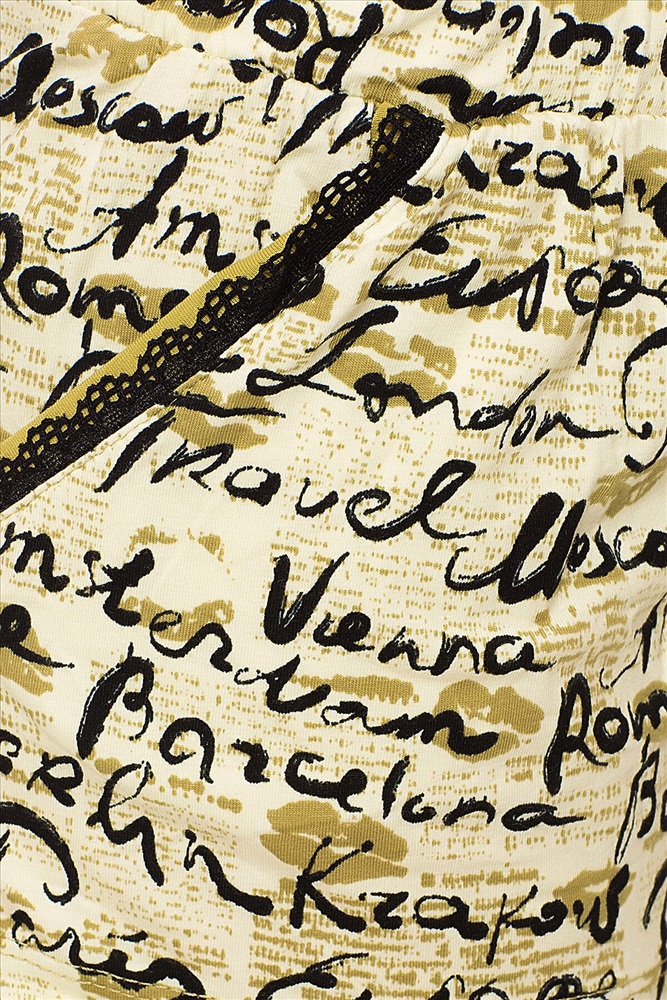 Moscow
Ams
Rome Europe
London
Travel Mosco
msterdam Vienna
Rom
Barcelona B
erlin Krakow
aris